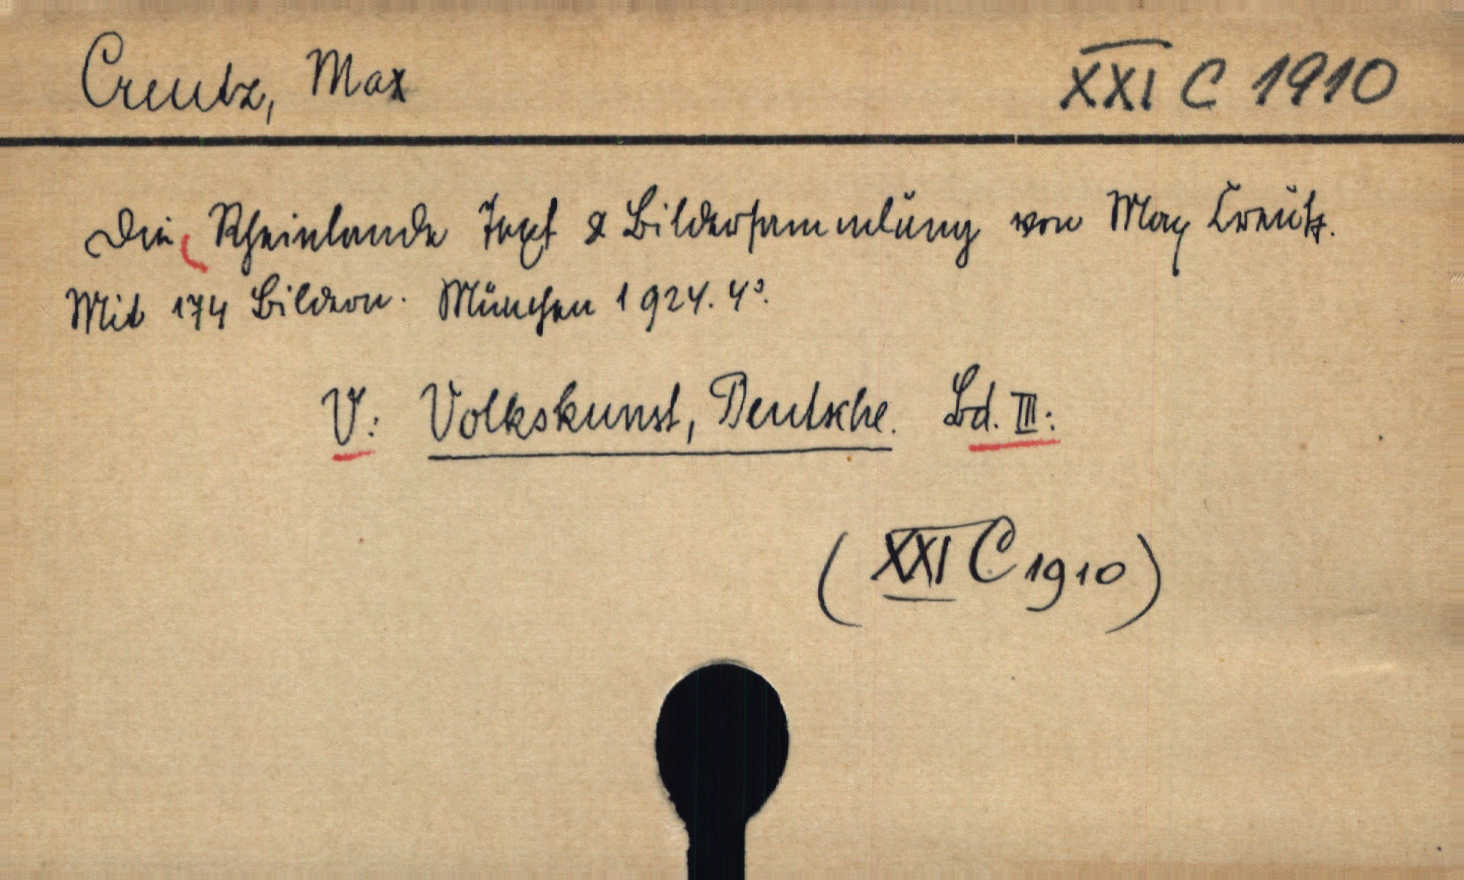 Creutz, Max
XXI C 1910
Die Rheinlande Text & Bildersammlung von Max Creutz.
Mit 174 Bildern. München 1924. 4°.
V: Volkskunst, Deutsche. Bd. III:
(XXI C 1910)